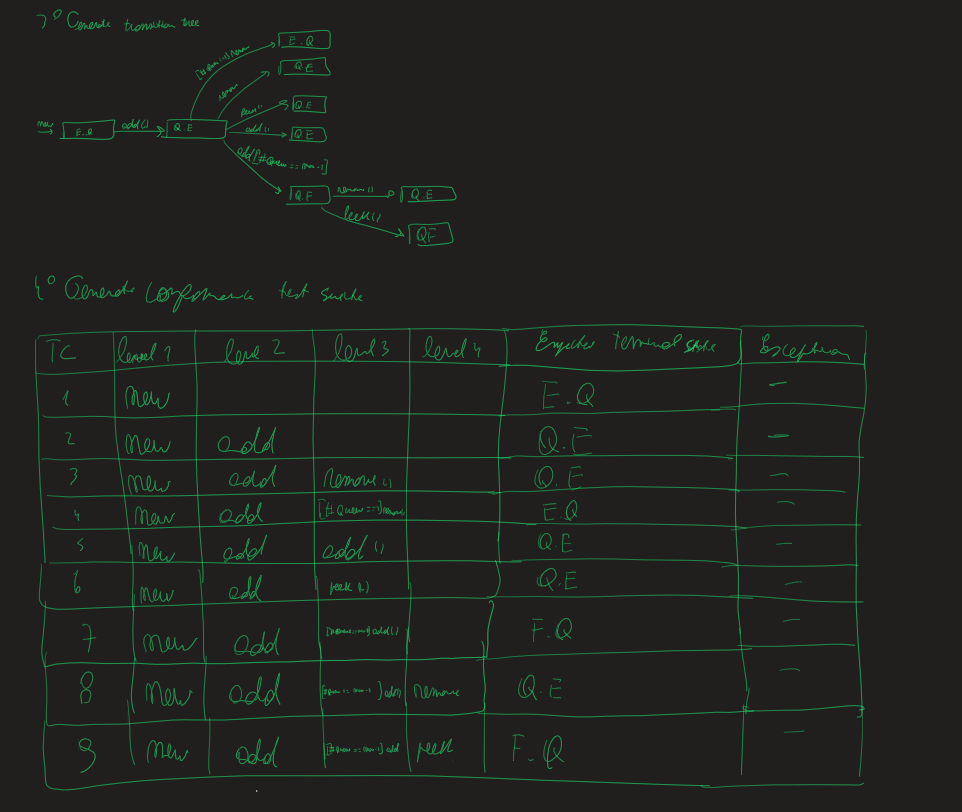 3º Generate transition tree
E.Q
[#Queue==1] remove
Q.E
remove
peek()
Q.E
new
E.Q
add()
Q.E
add()
Q.E
add[#Queue==max-1]
Q.F
remove()
Q.E
peek()
QF
4º Generate conformance test suite
TC level 1 level 2 level 3 level 4 Expected terminal state Exception
1 new E.Q -
2 new add Q.E -
3 new add remove() Q.E -
4 new add [#Queue==1]remove E.Q -
5 new add add() Q.E -
6 new add peek() Q.E -
7 new add [#Queue==max-1] add() F.Q -
8 new add [#Queue==max-1] add() remove Q.E -
9 new add [#Queue==max-1] add peek F.Q -